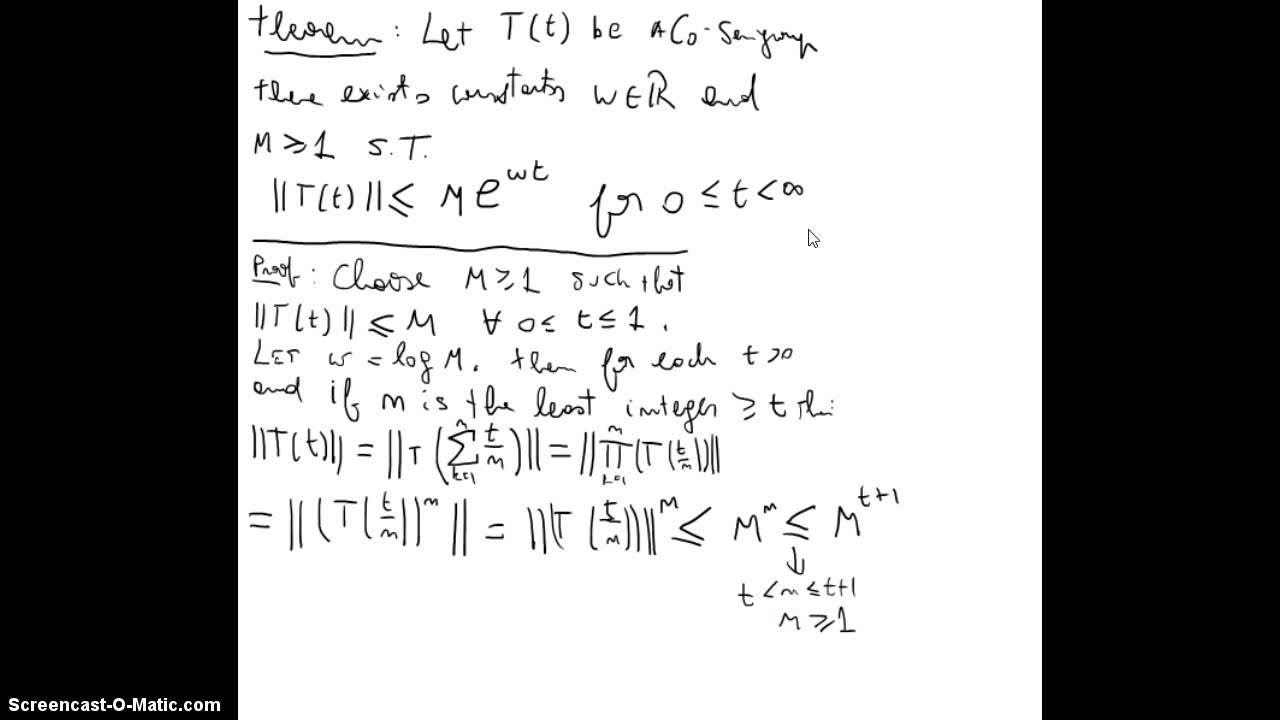 theorem : Let T(t) be A C₀-Semigroup
there exists constants w ∈ ℝ and
M ≥ 1 S.T.
||T(t)|| ≤ M e^{wt} for 0 ≤ t < ∞
Proof : Choose M ≥ 1 such that
||T(t)|| ≤ M ∀ 0 ≤ t ≤ 1 .
LET w = log M. then for each t > 0
and if n is the least integer ≥ t
||T(t)|| = ||T(∑_{k=1}^{n} t/n)|| = ||∏_{k=1}^{n} (T(t/n))||
= ||(T(t/n))^n|| = ||(T(t/n))||^n ≤ M^n ≤ M^{t+1}
↓
t < n ≤ t+1
M ≥ 1
Screencast-O-Matic.com